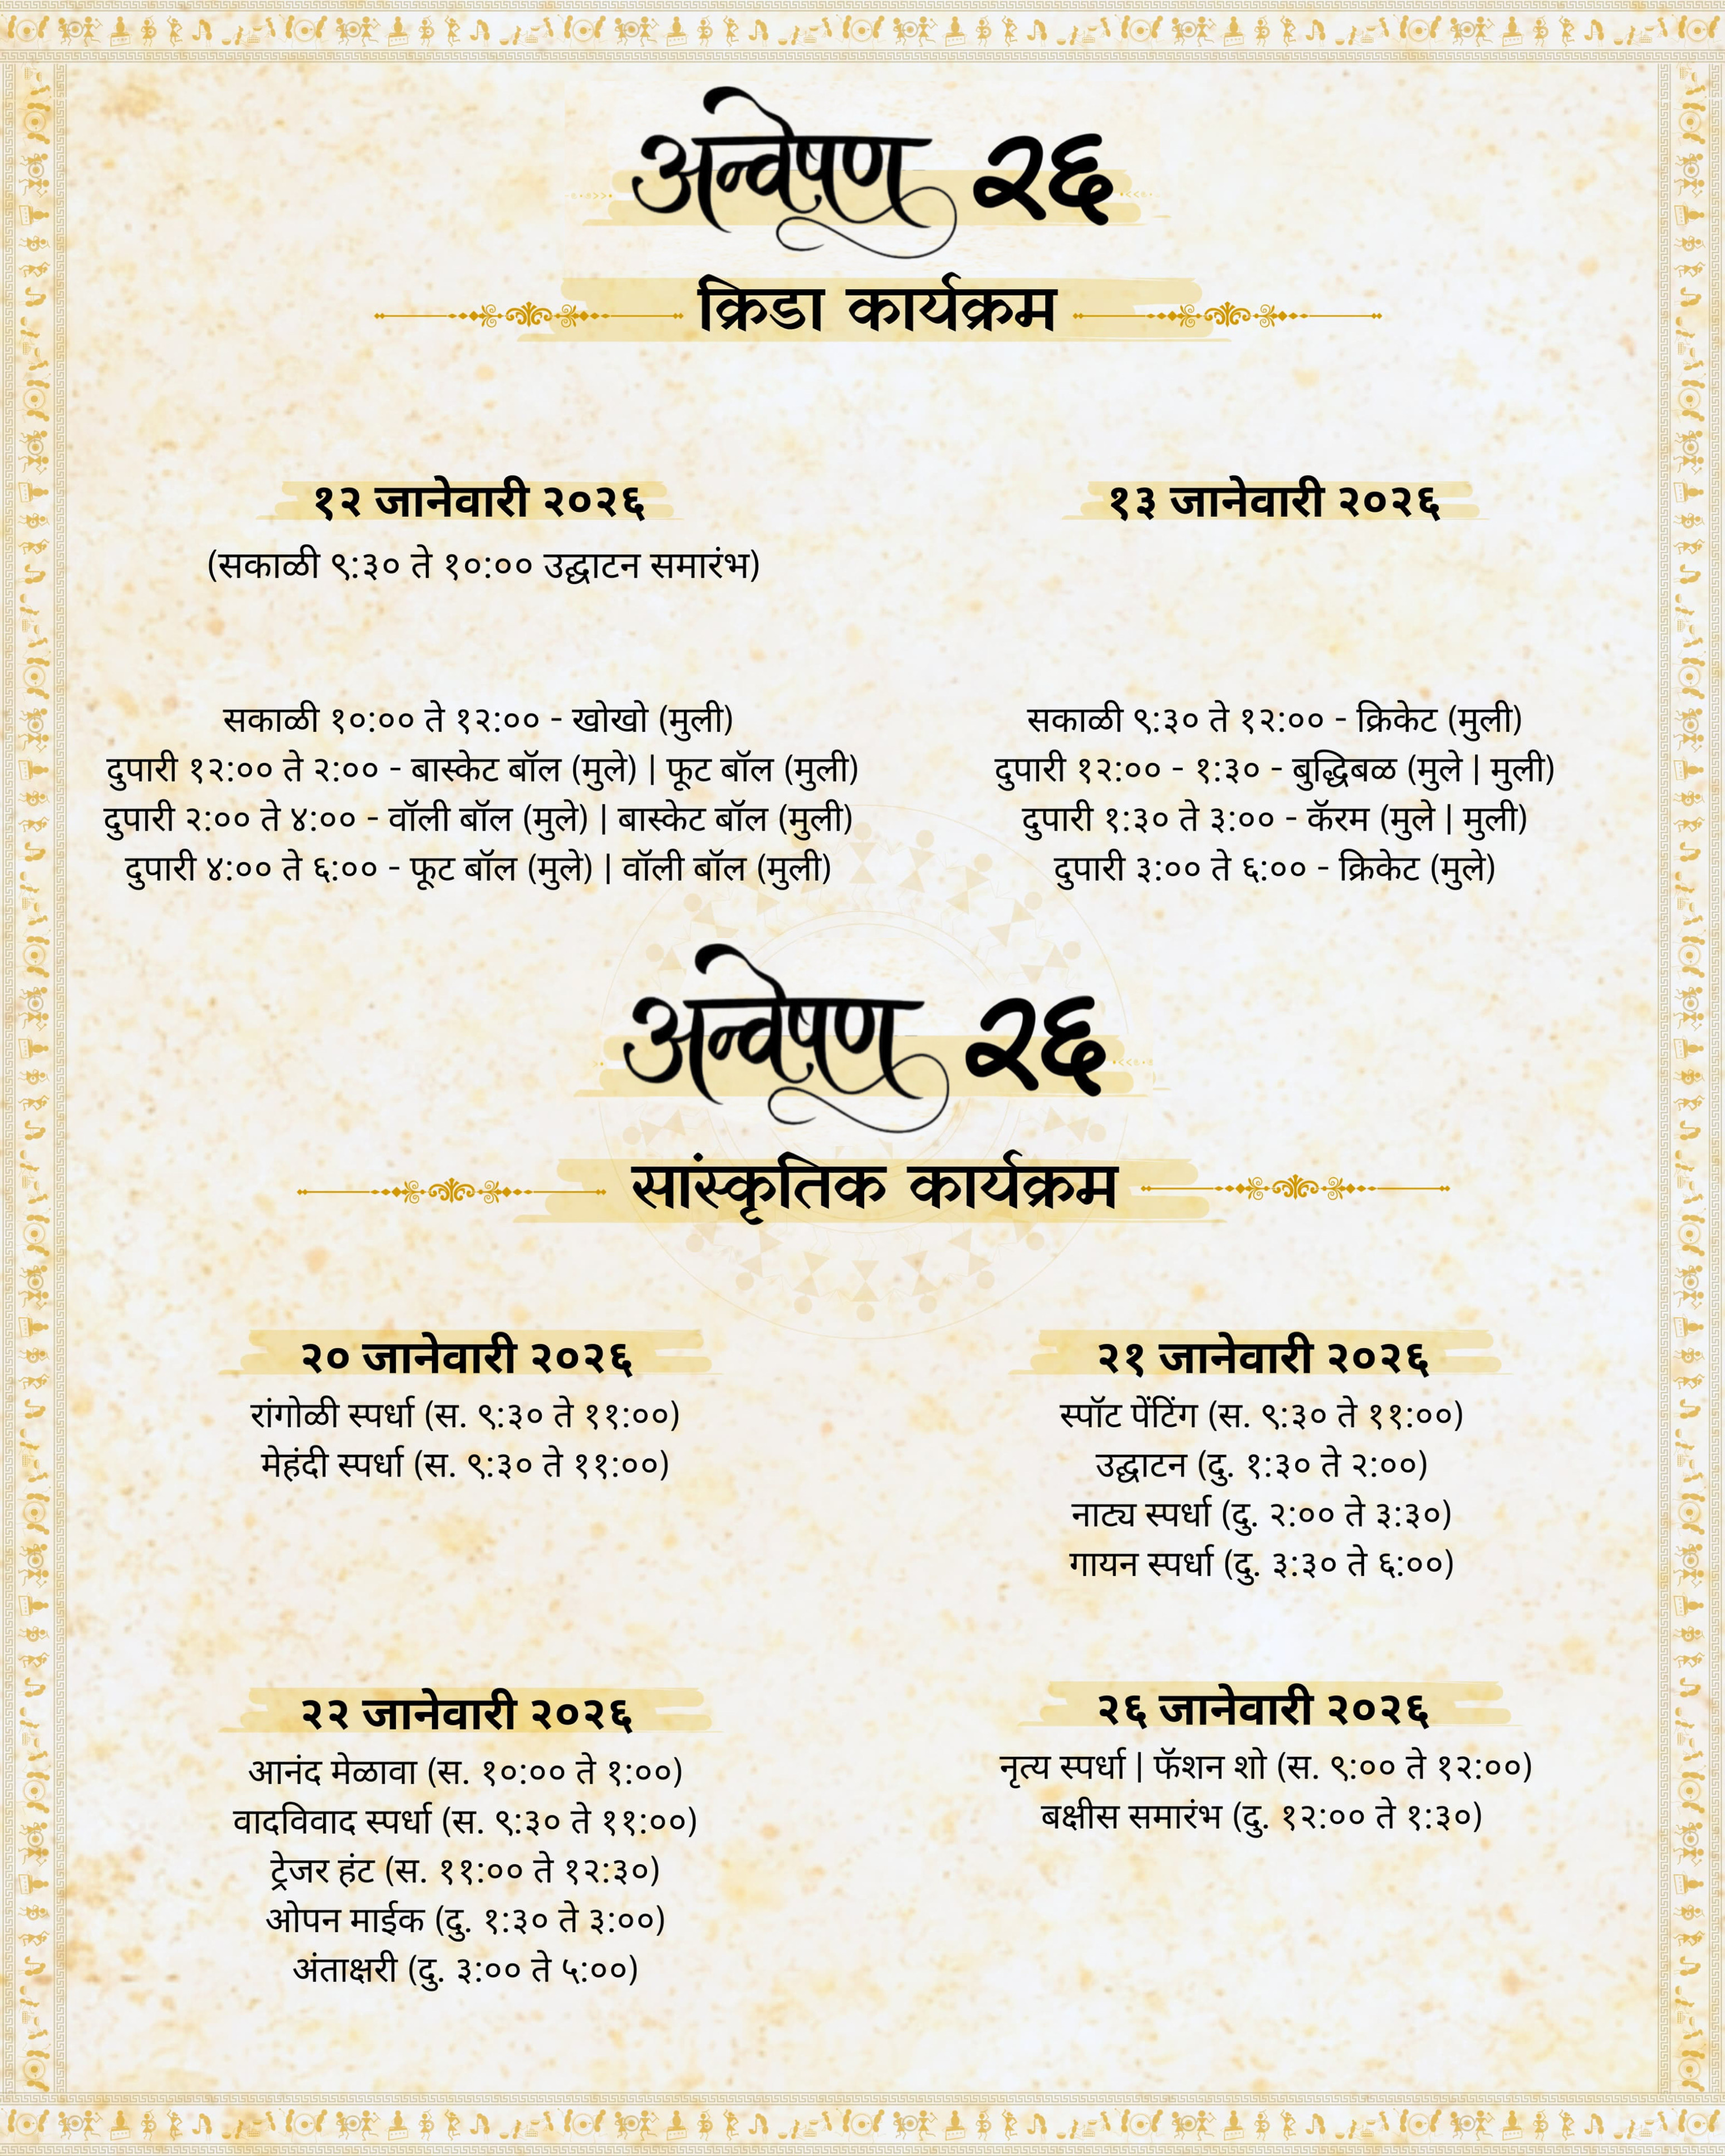 अन्वेषण २६
क्रिडा कार्यक्रम
१२ जानेवारी २०२६
(सकाळी ९:३० ते १०:०० उद्घाटन समारंभ)
सकाळी १०:०० ते १२:०० - खोखो (मुली)
दुपारी १२:०० ते २:०० - बास्केट बॉल (मुले) | फूट बॉल (मुली)
दुपारी २:०० ते ४:०० - वॉली बॉल (मुले) | बास्केट बॉल (मुली)
दुपारी ४:०० ते ६:०० - फूट बॉल (मुले) | वॉली बॉल (मुली)
१३ जानेवारी २०२६
सकाळी ९:३० ते १२:०० - क्रिकेट (मुली)
दुपारी १२:०० - १:३० - बुद्धिबळ (मुले | मुली)
दुपारी १:३० ते ३:०० - कॅरम (मुले | मुली)
दुपारी ३:०० ते ६:०० - क्रिकेट (मुले)
अन्वेषण २६
सांस्कृतिक कार्यक्रम
२० जानेवारी २०२६
रांगोळी स्पर्धा (स. ९:३० ते ११:००)
मेहंदी स्पर्धा (स. ९:३० ते ११:००)
२१ जानेवारी २०२६
स्पॉट पेंटिंग (स. ९:३० ते ११:००)
उद्घाटन (दु. १:३० ते २:००)
नाट्य स्पर्धा (दु. २:०० ते ३:३०)
गायन स्पर्धा (दु. ३:३० ते ६:००)
२२ जानेवारी २०२६
आनंद मेळावा (स. १०:०० ते १:००)
वादविवाद स्पर्धा (स. ९:३० ते ११:००)
ट्रेजर हंट (स. ११:०० ते १२:३०)
ओपन माईक (दु. १:३० ते ३:००)
अंताक्षरी (दु. ३:०० ते ५:००)
२६ जानेवारी २०२६
नृत्य स्पर्धा | फॅशन शो (स. ९:०० ते १२:००)
बक्षीस समारंभ (दु. १२:०० ते १:३०)